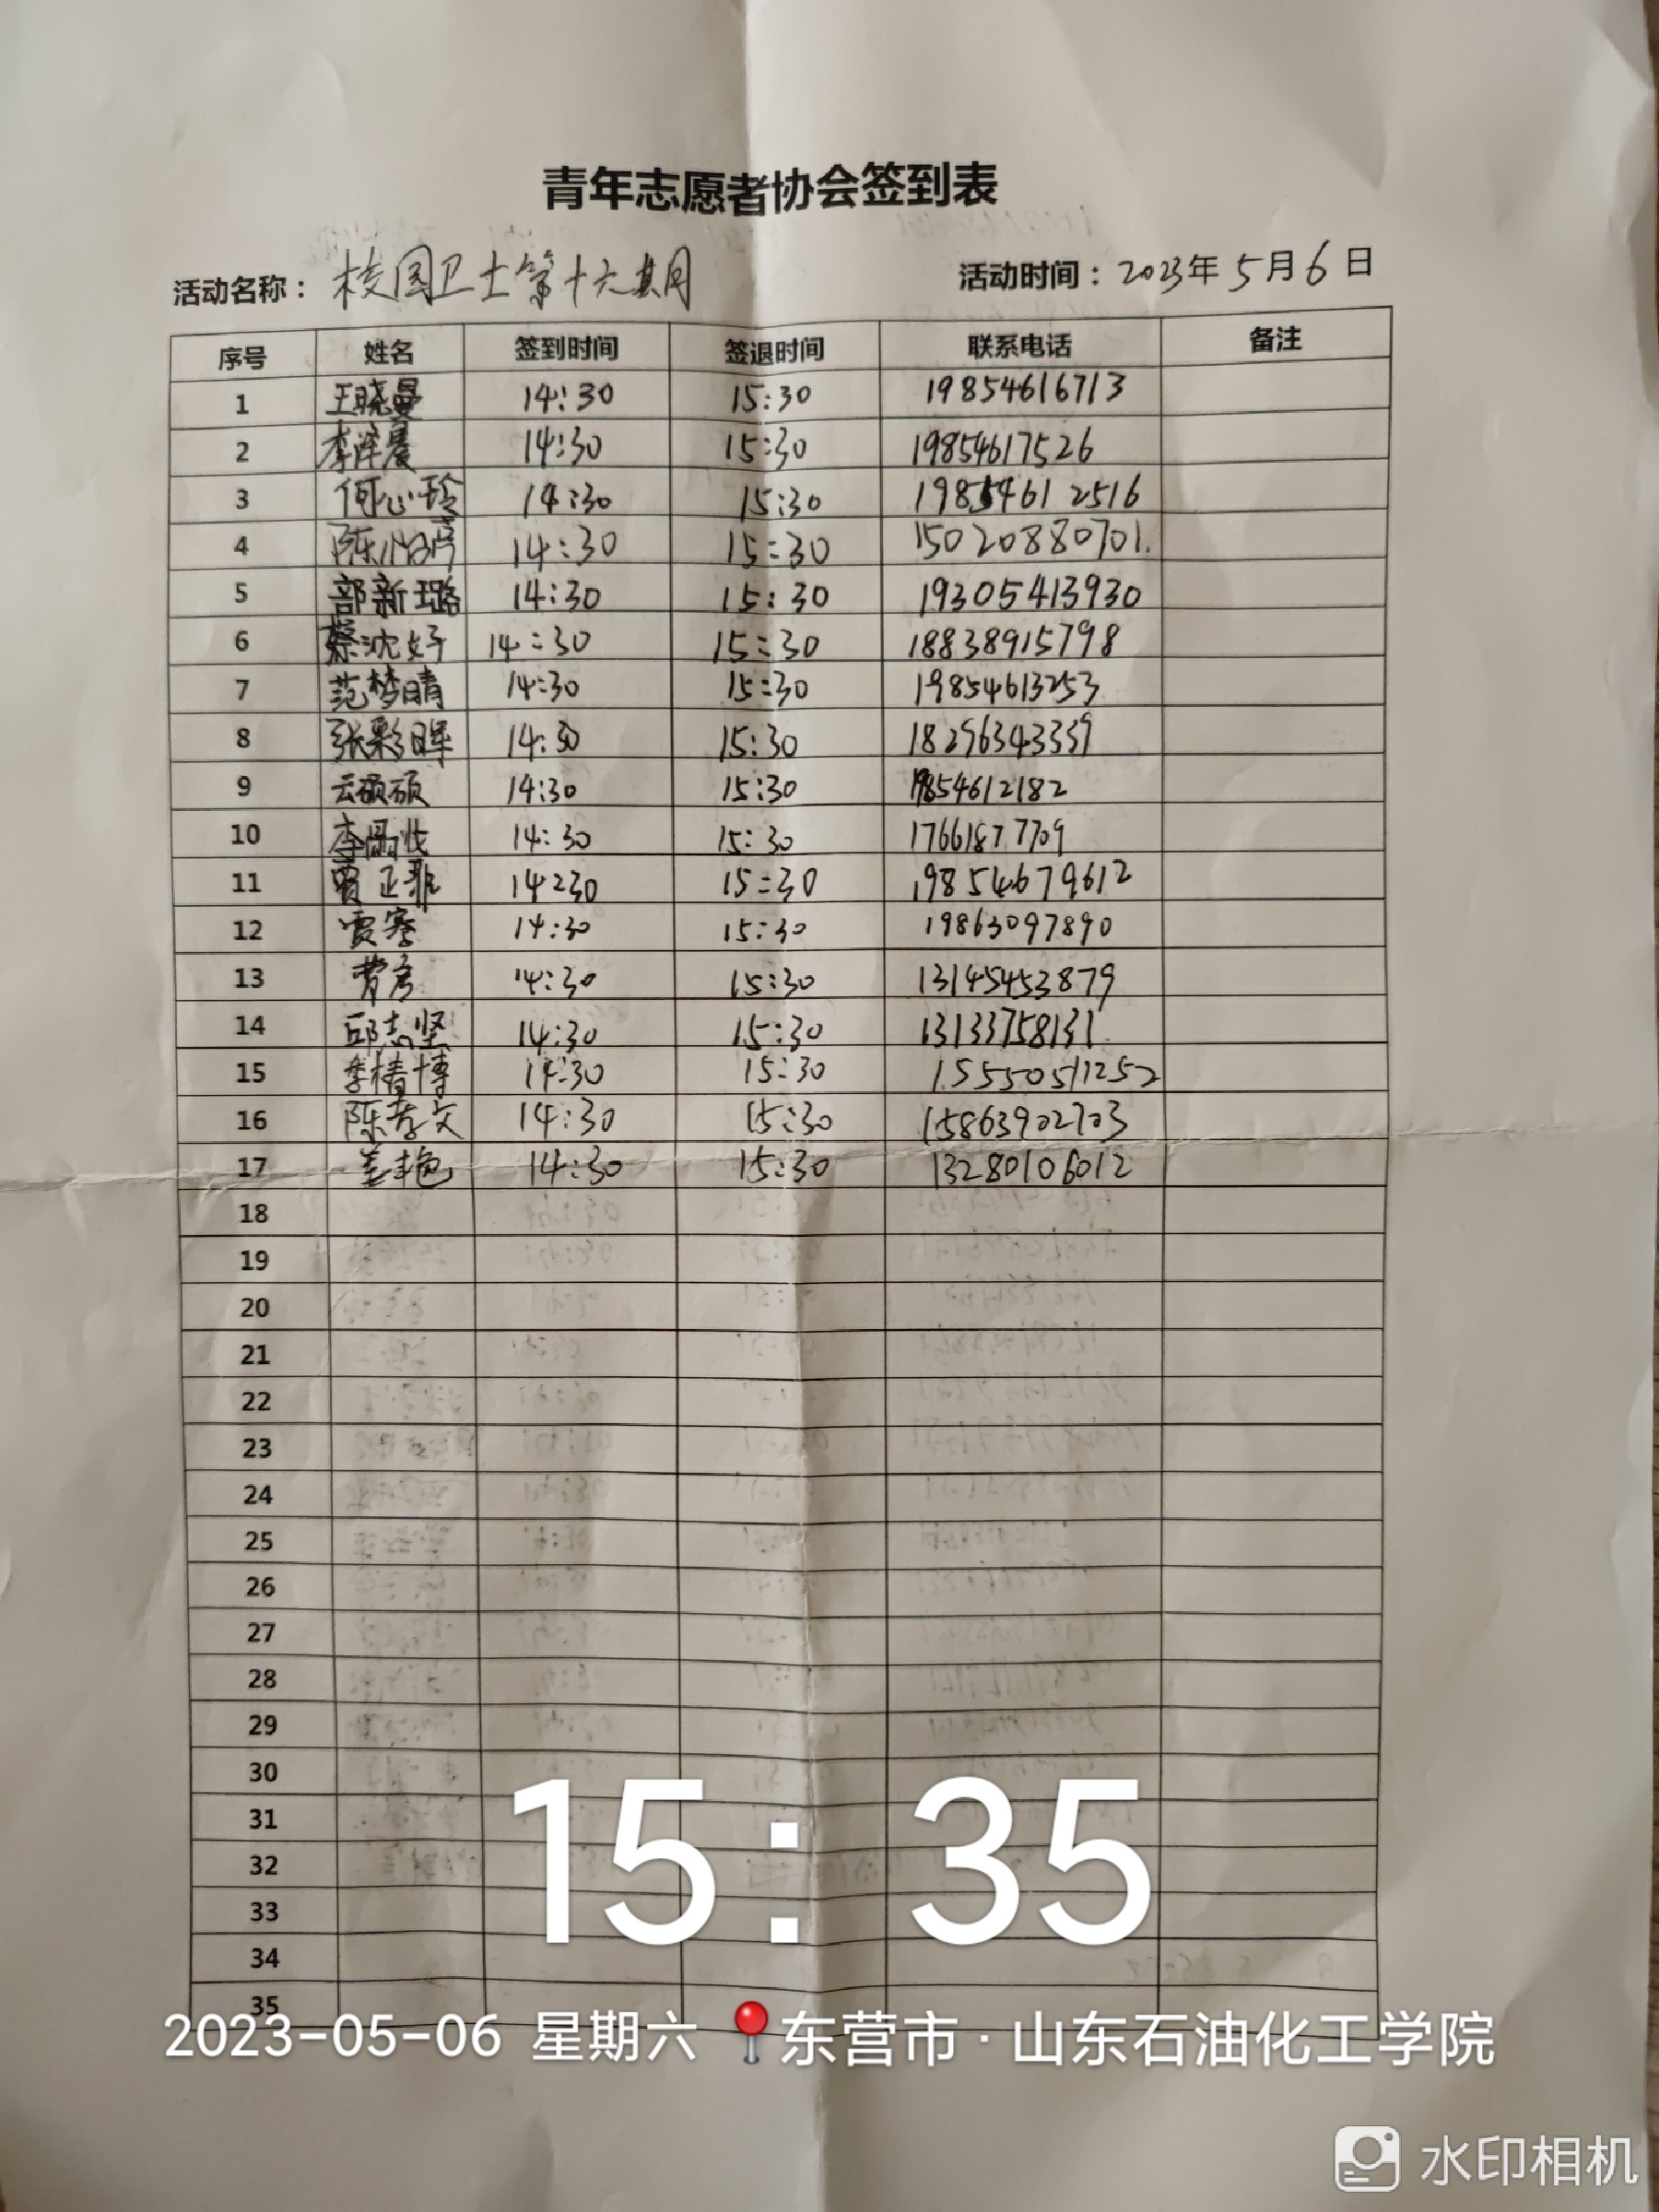 青年志愿者协会签到表
活动名称： 校园卫士第十六期 活动时间：2023年5月6日
序号 姓名 签到时间 签退时间 联系电话 备注
1 王晓曼 14:30 15:30 19854616713
2 李泽晨 14:30 15:30 19854617526
3 何心玲 14:30 15:30 19854612516
4 14:30 15:30 15020880701.
5 部新璐 14:30 15:30 19305413930
6 蔡沈好 14:30 15:30 18838915798
7 范梦晴 14:30 15:30 19854613253
8 张彩晖 14:30 15:30 18296343339
9 云硕硕 14:30 15:30 19854612182
10 14:30 15:30 17661877709
11 贾正菲 14:30 15:30 19854679612
12 贾寒 14:30 15:30 19863097890
13 14:30 15:30 13145453879
14 邱志坚 14:30 15:30 13133758131.
15 李楠博 14:30 15:30 15550511252
16 陈孝文 14:30 15:30 15863902703
17 姜丰艳 14:30 15:30 13280106012
18
19
20
21
22
23
24
25
26
27
28
29
30
31
32
33
34
35
15:35
2023-05-06 星期六 东营市·山东石油化工学院
水印相机